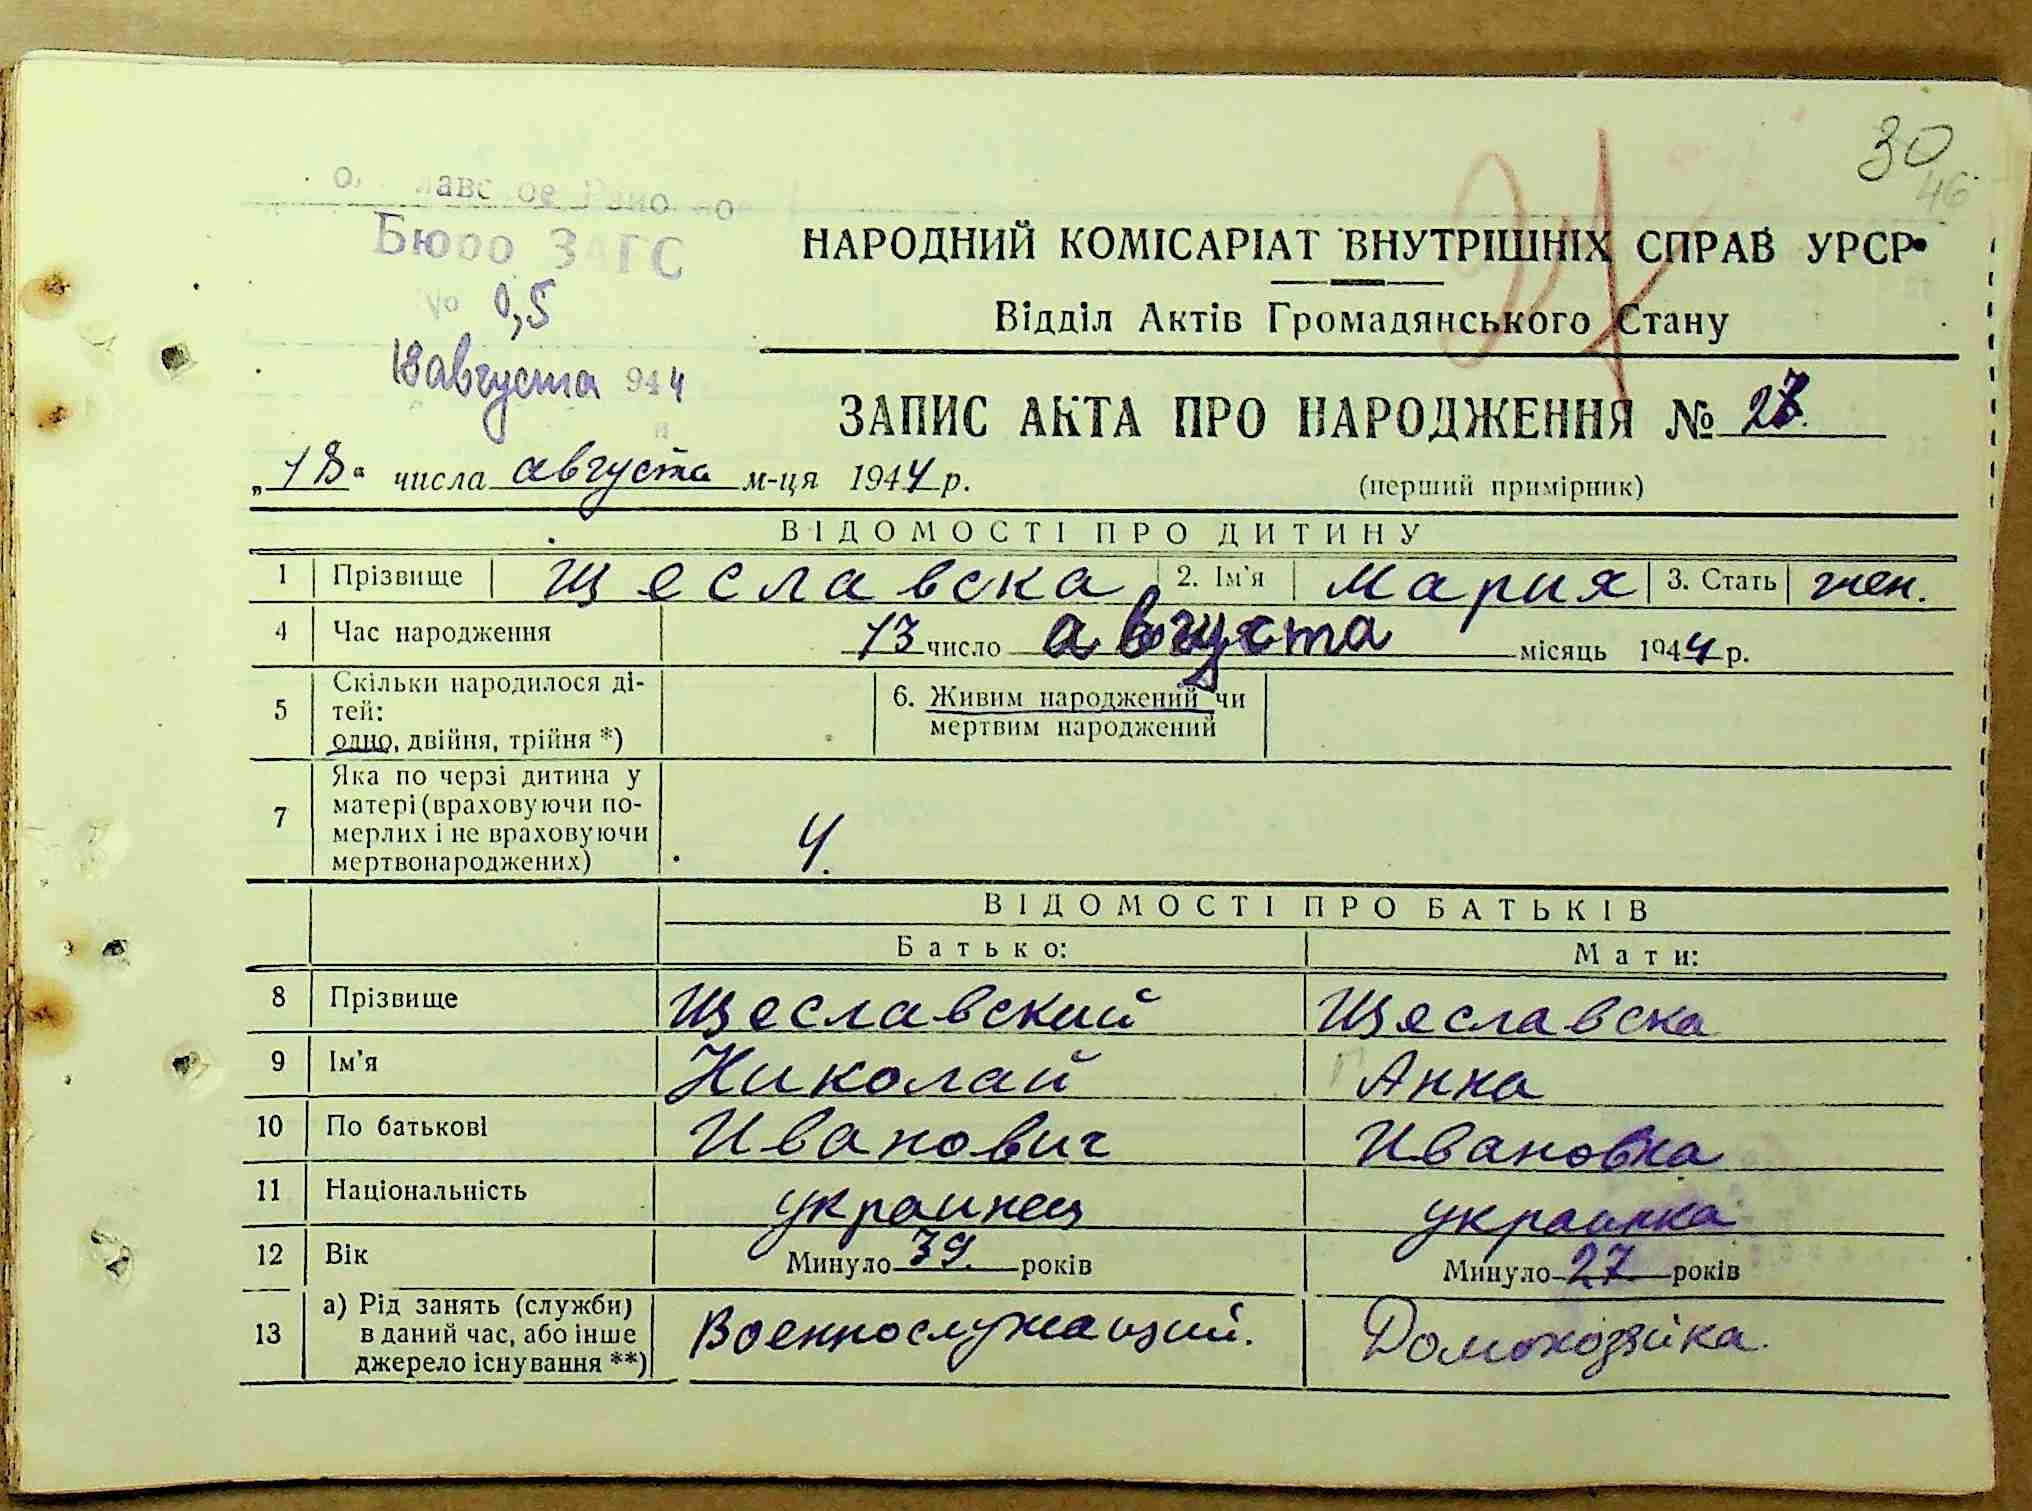 30
46
Бюро ЗАГС
НАРОДНИЙ КОМІСАРІАТ ВНУТРІШНІХ СПРАВ УРСР
№ 0,5
Відділ Актів Громадянського Стану
18 августа 944
ЗАПИС АКТА ПРО НАРОДЖЕННЯ № 27.
„18“ числа августа м-ця 1944 р.
(перший примірник)
ВІДОМОСТІ ПРО ДИТИНУ
1 Прізвище Щеславска 2. Ім'я Мария 3. Стать жен.
4 Час народження 13 число августа місяць 1944 р.
5 Скільки народилося ді-
тей:
одно, двійня, трійня *)
6. Живим народжений чи
мертвим народжений
7 Яка по черзі дитина у
матері (враховуючи по-
мерлих і не враховуючи
мертвонароджених)
4.
ВІДОМОСТІ ПРО БАТЬКІВ
Батько: Мати:
8 Прізвище Щеславский Щеславска
9 Ім'я Николай Анна
10 По батькові Иванович Ивановна
11 Національність украинец украинка
12 Вік Минуло 39. років Минуло 27. років
13 а) Рід занять (служби)
в даний час, або інше
джерело існування **)
Военнослужащий. Домохозяйка.